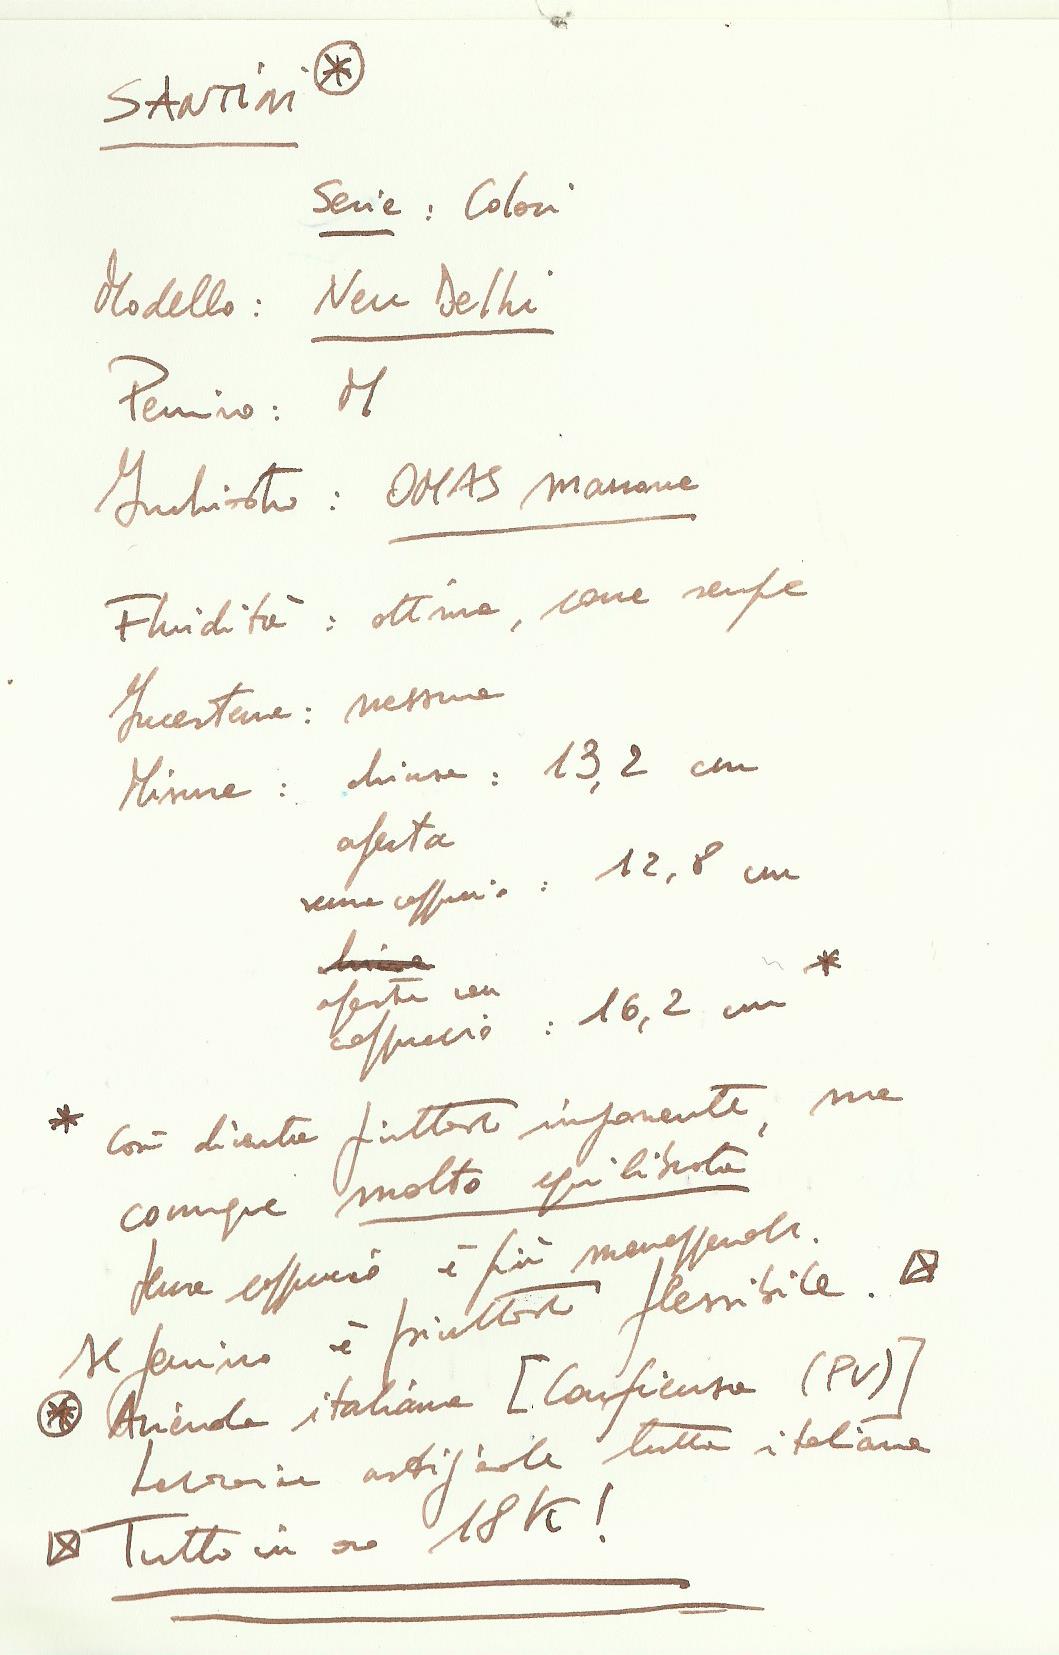 SANTINI *
Serie : Colori
Modello : New Delhi
Pennino : M
Inchiostro : OMAS marrone
Fluidità : ottima, come sempre
Incertezze : nessuna
Misure : chiusa : 13,2 cm
aperta
senza cappuccio : 12,8 cm
aperta con
cappuccio : 16,2 cm *
* Così diventa piuttosto imponente, ma
comunque molto equilibrata
Senza cappuccio è più maneggevole.
Il pennino è piuttosto flessibile. ⊠
* Azienda italiana [Confienza (PV)]
Lavorazione artigianale tutta italiana
⊠ Tutto in oro 18 K!